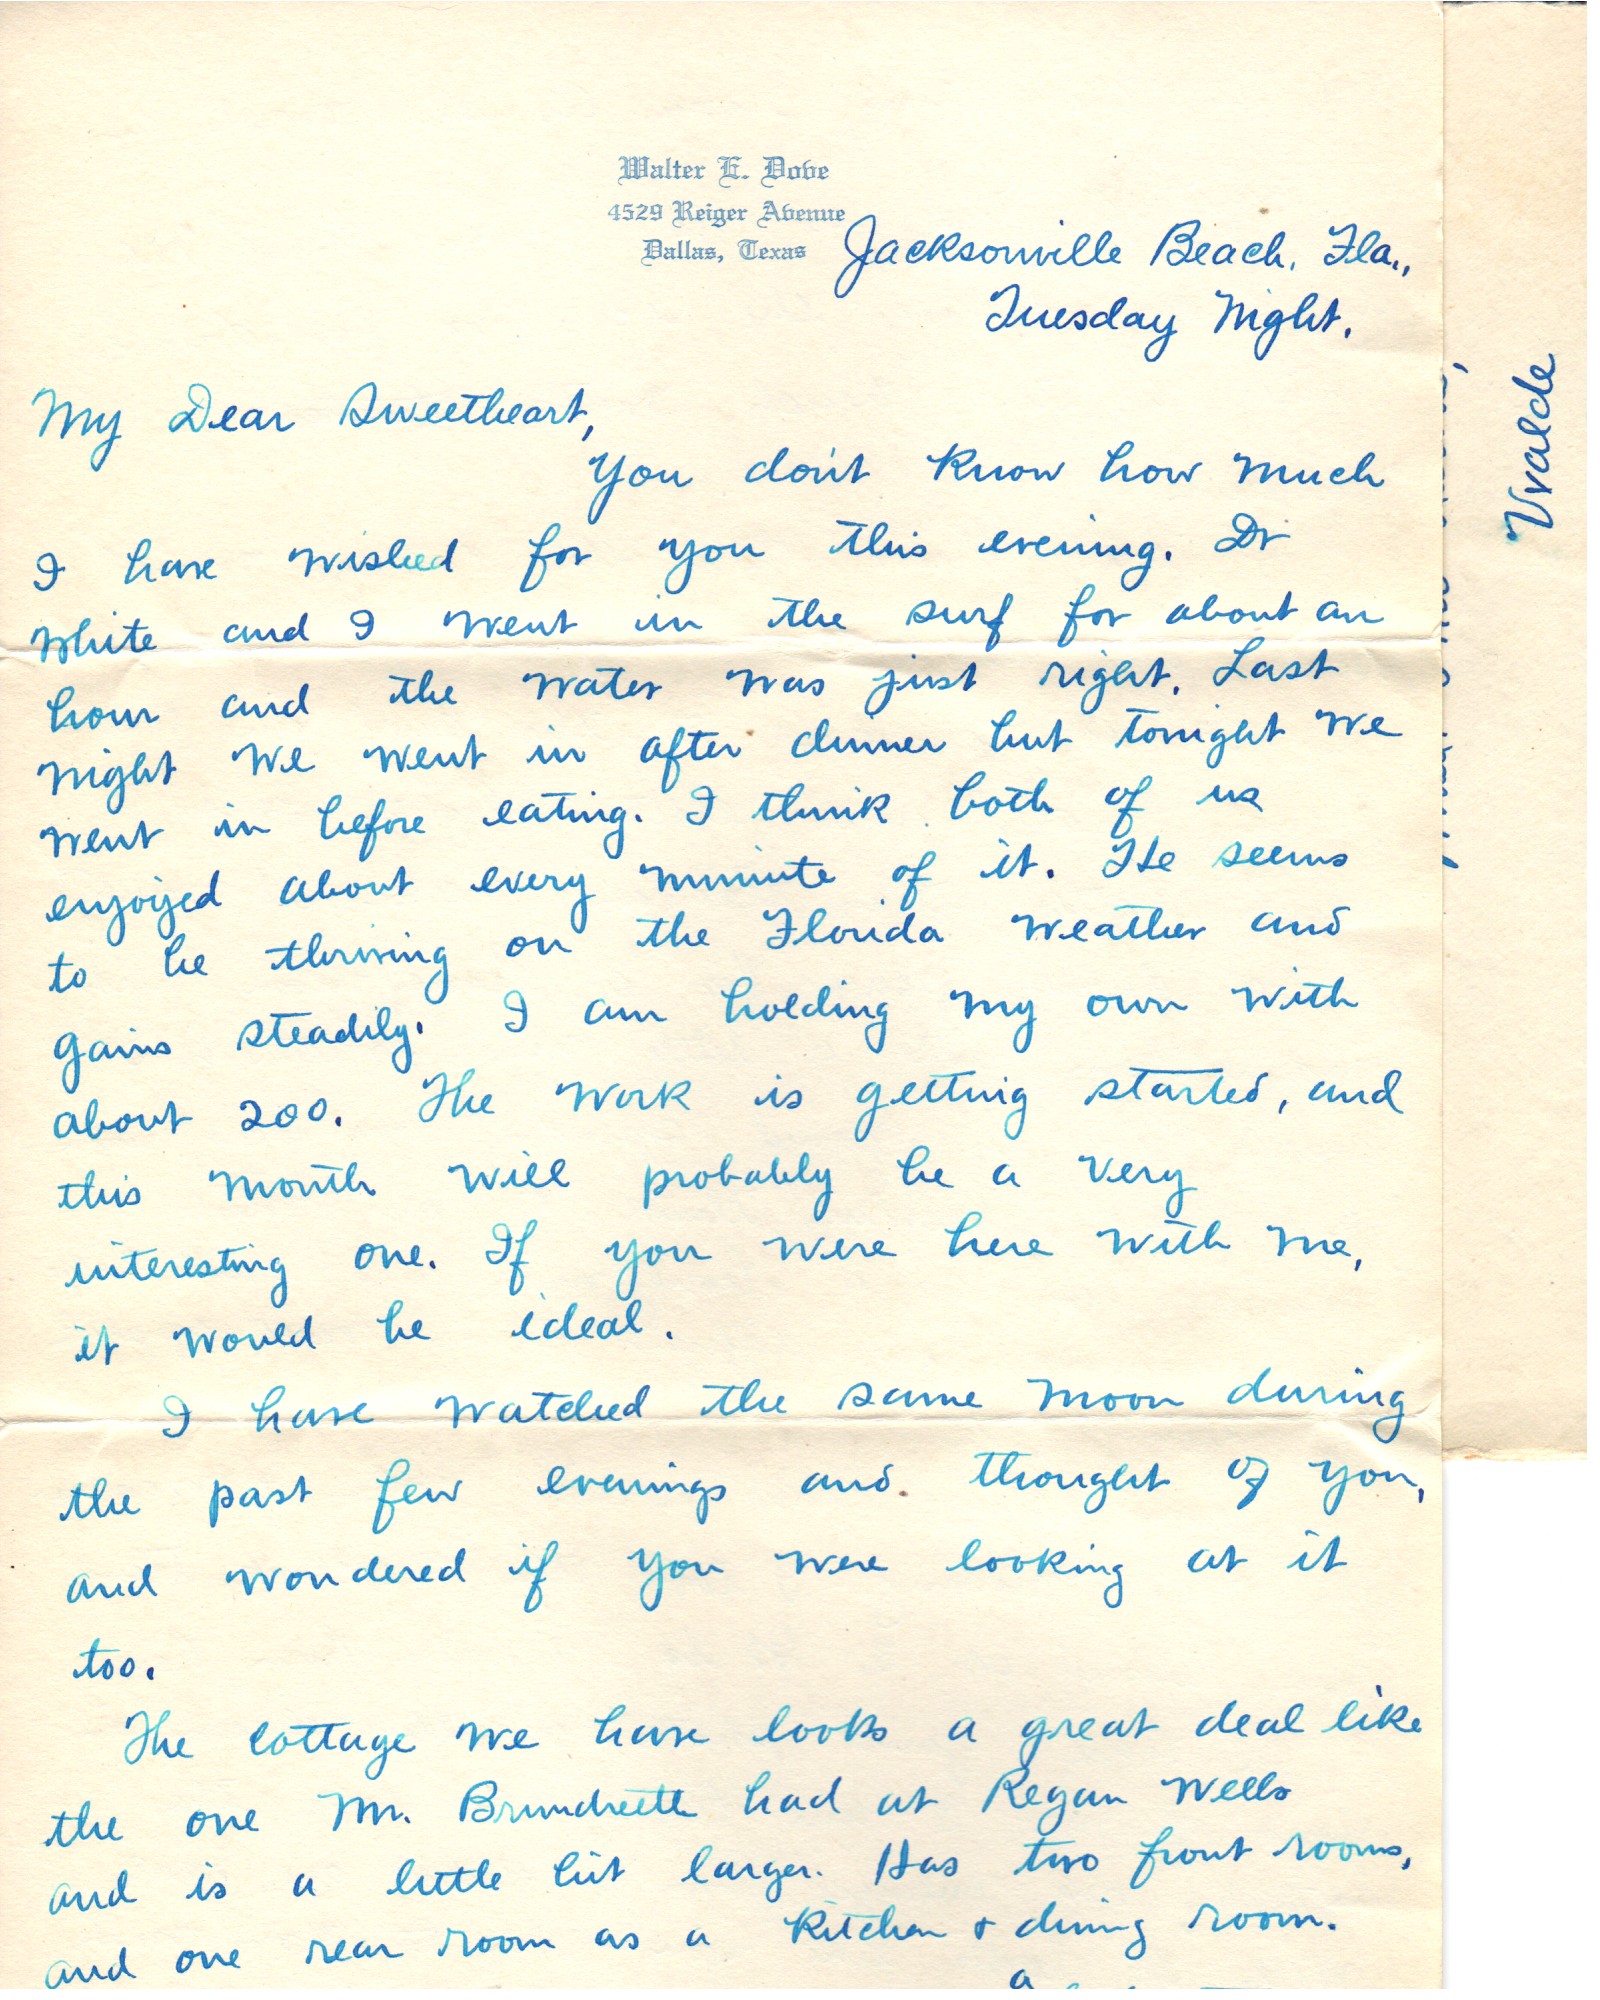 Walter E. Dove
4529 Reiger Avenue
Dallas, Texas
Jacksonville Beach, Fla.,
Tuesday Night.
My Dear Sweetheart,
You don't know how much
I have wished for you this evening. Dr
White and I went in the surf for about an
hour and the water was just right. Last
night we went in after dinner but tonight we
went in before eating. I think both of us
enjoyed about every minute of it. He seems
to be thriving on the Florida weather and
gains steadily. I am holding my own with
about 200. The work is getting started, and
this month will probably be a very
interesting one. If you were here with me,
it would be ideal.
I have watched the same moon during
the past few evenings and thought of you,
and wondered if you were looking at it
too.
The cottage we have looks a great deal like
the one Mr. Brundrett had at Regan Wells
and is a little bit larger. Has two front rooms,
and one rear room as a kitchen & dining room.
a
Uvalde